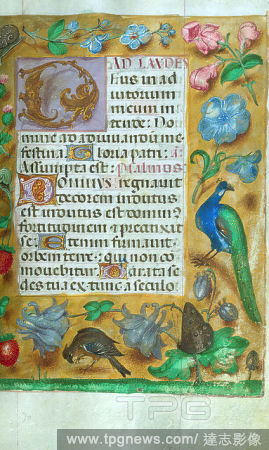 AD LAUDES
Eus in ad
iutorium
meum in
tende: Do
mine ad adiuuandū me
festina. Gloria patri: a:
Assumpta est: psalmus
DOMINUS regnauit
decorem indutus
est indutus est dominus
fortitudinem et precinxit
se: Etenim firmauit
orbem terre: qui non co
mouebitur: Parata se
des tua ex tunc a seculo
TPG
www.tpgnews.com / 達志影像